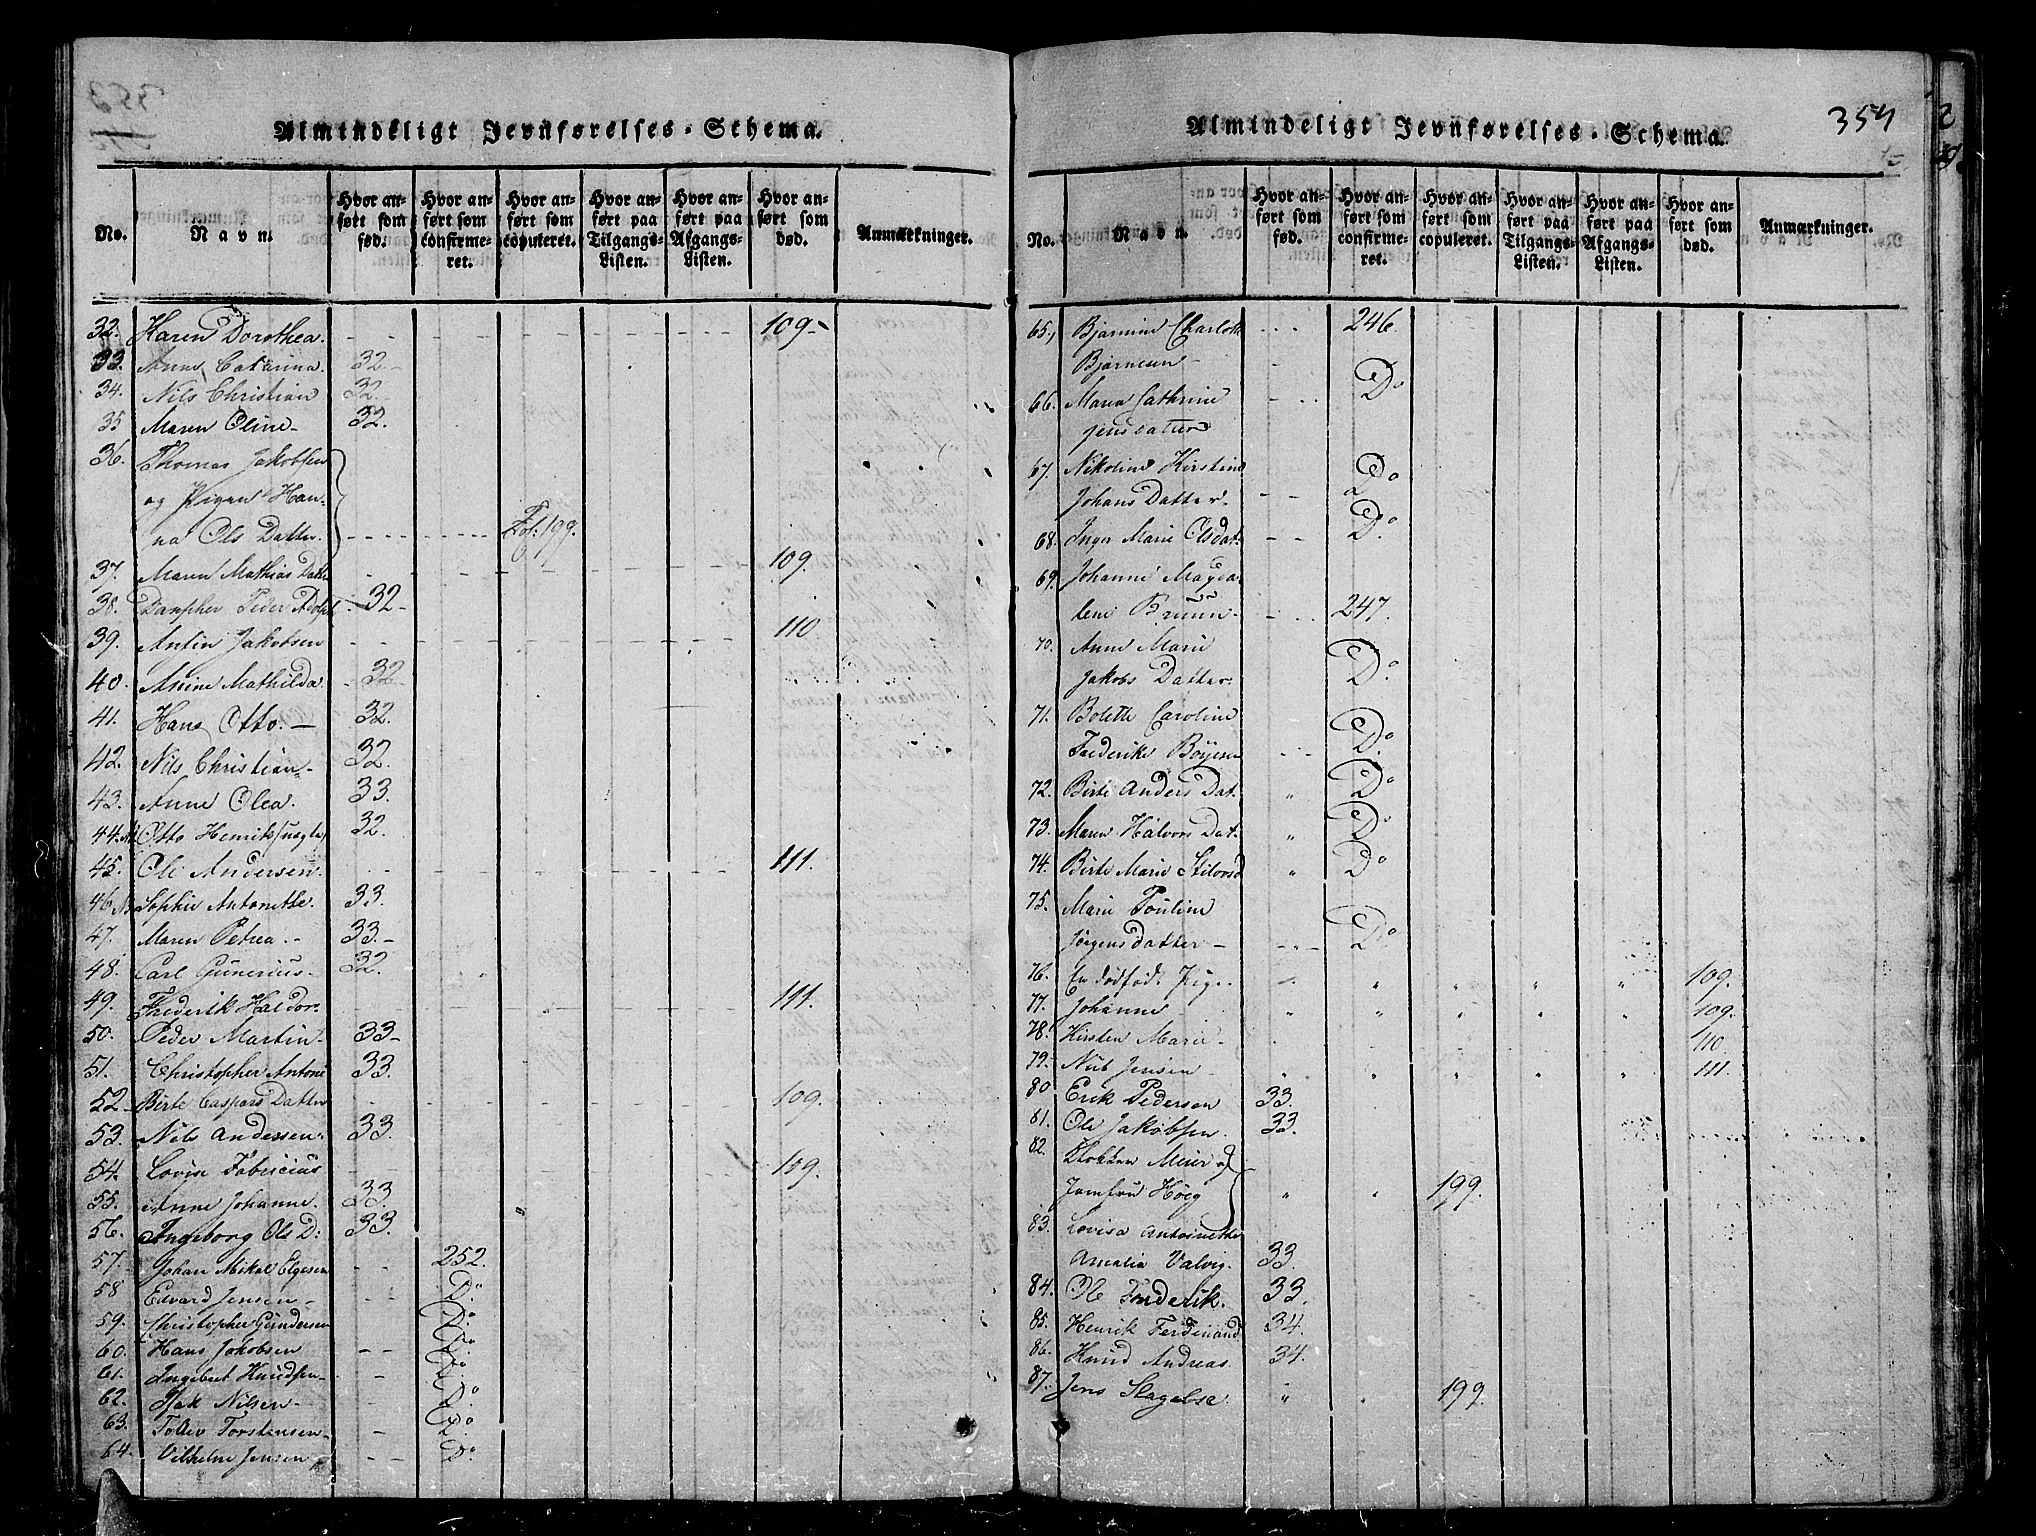 Almindeligt Jevnførelses-Schema.
No. Navn Hvor anført som fød. Hvor anført som confirmeret. Hvor anført som copuleret. Hvor anført paa Tilgangs-Listen. Hvor anført paa Afgangs-Listen. Hvor anført som død. Anmærkninger.
32. Karen Dorothea. 109
33. Anne Catarina. 32
34. Nils Christian 32.
35 Maren Oline 32.
36. Thomas Jakobsen
og Pigen Han-
na Ols Datter. Fol: 199.
37. Maren Mathias Datter 109.
38. Peder Adolph 32
39. Antin Jakobsen 110
40. Anine Mathilda 32
41. Hans Otto. 32.
42. Nils Christian 32.
43. Anne Olea. 33.
44. Otto Henrik (uægte) 32.
45. Ole Andersen. 111.
46 Sophie Antonette. 33.
47. Maren Petrea. 33.
48. Carl Gunerius. 32.
49. Frederik Haldor. 111.
50. Peder Martin 33
51. Christopher Antoni 33.
52 Birte Caspars Datter 109.
53. Nils Andersen. 33.
54. Lovise Fabricius 109.
55. Anne Johanne. 33.
56. Ingeborg Ols D: 33.
57. Johan Mikal Elgesen 252.
58 Edvard Jensen Do
59. Christopher Gundersen Do
60. Hans Jakobsen Do
61. Ingebret Knudsen Do
62. Isak Nilsen Do
63. Tollev Torstensen Do
64. Vilhelm Jensen Do
354
Almindeligt Jevnførelses-Schema.
No. Navn Hvor anført som fød. Hvor anført som confirmeret. Hvor anført som copuleret. Hvor anført paa Tilgangs-Listen. Hvor anført paa Afgangs-Listen. Hvor anført som død. Anmærkninger.
65. Bjarnine Charlotte 246.
Bjørnesen
66. Maren Cathrine Do
Jensdatter
67. Nikoline Kirstine Do
Johans Datter
68. Inger Marie Olsdat. Do
69. Johanne Magda-
lene Bruun 247.
70. Anne Marie
Jakobs Datter. Do
71. Bolette Caroline
Frederike Böyesen Do
72. Birte Anders Dat. " Do
73. Maren Halvors Dat. " Do
74. Birte Marie " Do
75. Marie Pouline
Jørgensdatter Do
76. En dødfød. Pige 109.
77. Johanne 109.
78. Kirsten Marie 110
79. Nils Jensen 111.
80 Erik Pedersen 33.
81. Ole Jakobsen. 33.
82. Meier og
Jomfru Høeg 199.
83. Lovisa Antoinette
Amalia Valvig. 33.
84. Ole Frederik. 33.
85. Henrik Ferdinand 34.
86. Knud Andreas. 34.
87. Jens Slagelse 199.